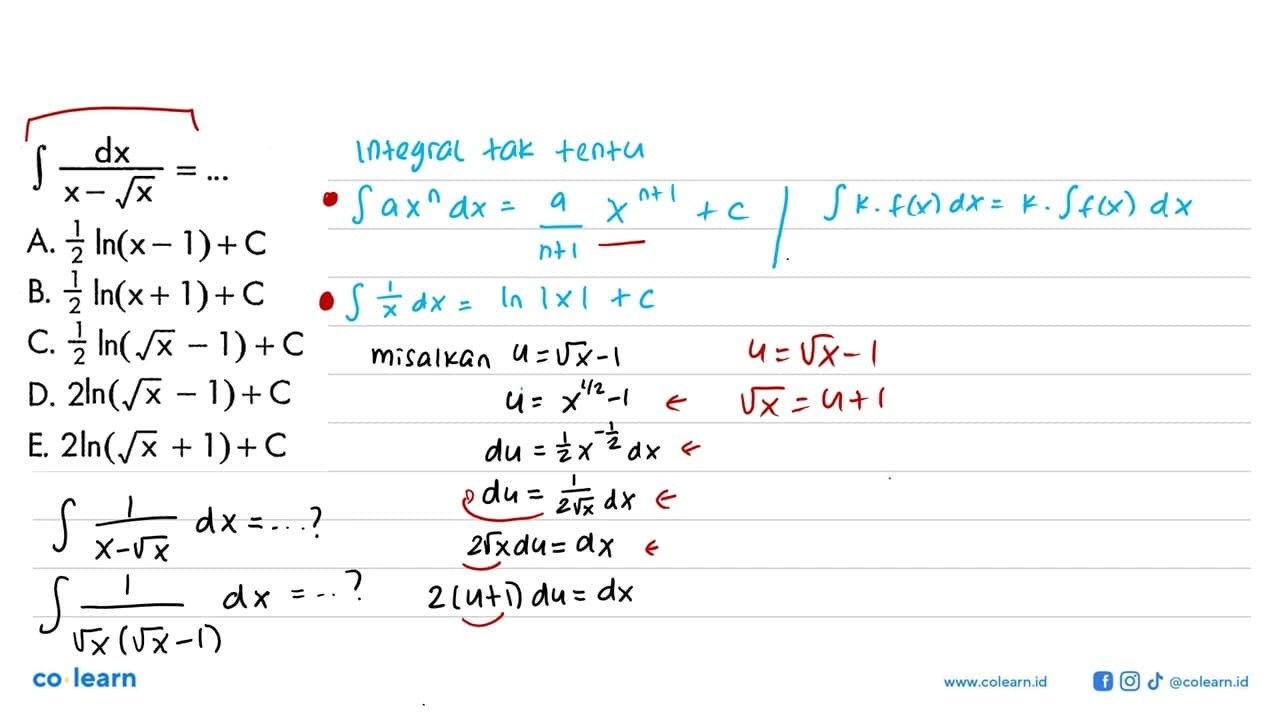 ∫ dx / (x − √x) = ...
A. 1/2 ln(x − 1) + C
B. 1/2 ln(x + 1) + C
C. 1/2 ln(√x − 1) + C
D. 2ln(√x − 1) + C
E. 2ln(√x + 1) + C
∫ 1/(x−√x) dx = ...?
∫ 1/(√x(√x−1)) dx = ..?
Integral tak tentu
• ∫ ax^n dx = a/(n+1) x^(n+1) + c | ∫ k.f(x) dx = k.∫f(x) dx
• ∫ 1/x dx = ln |x| + c
misalkan u = √x−1
u = x^(1/2) −1 ←
du = 1/2 x^(−1/2) dx ←
du = 1/(2√x) dx ←
2√x du = dx ←
2(u+1) du = dx
u = √x − 1
√x = u+1
co·learn
www.colearn.id
@colearn.id